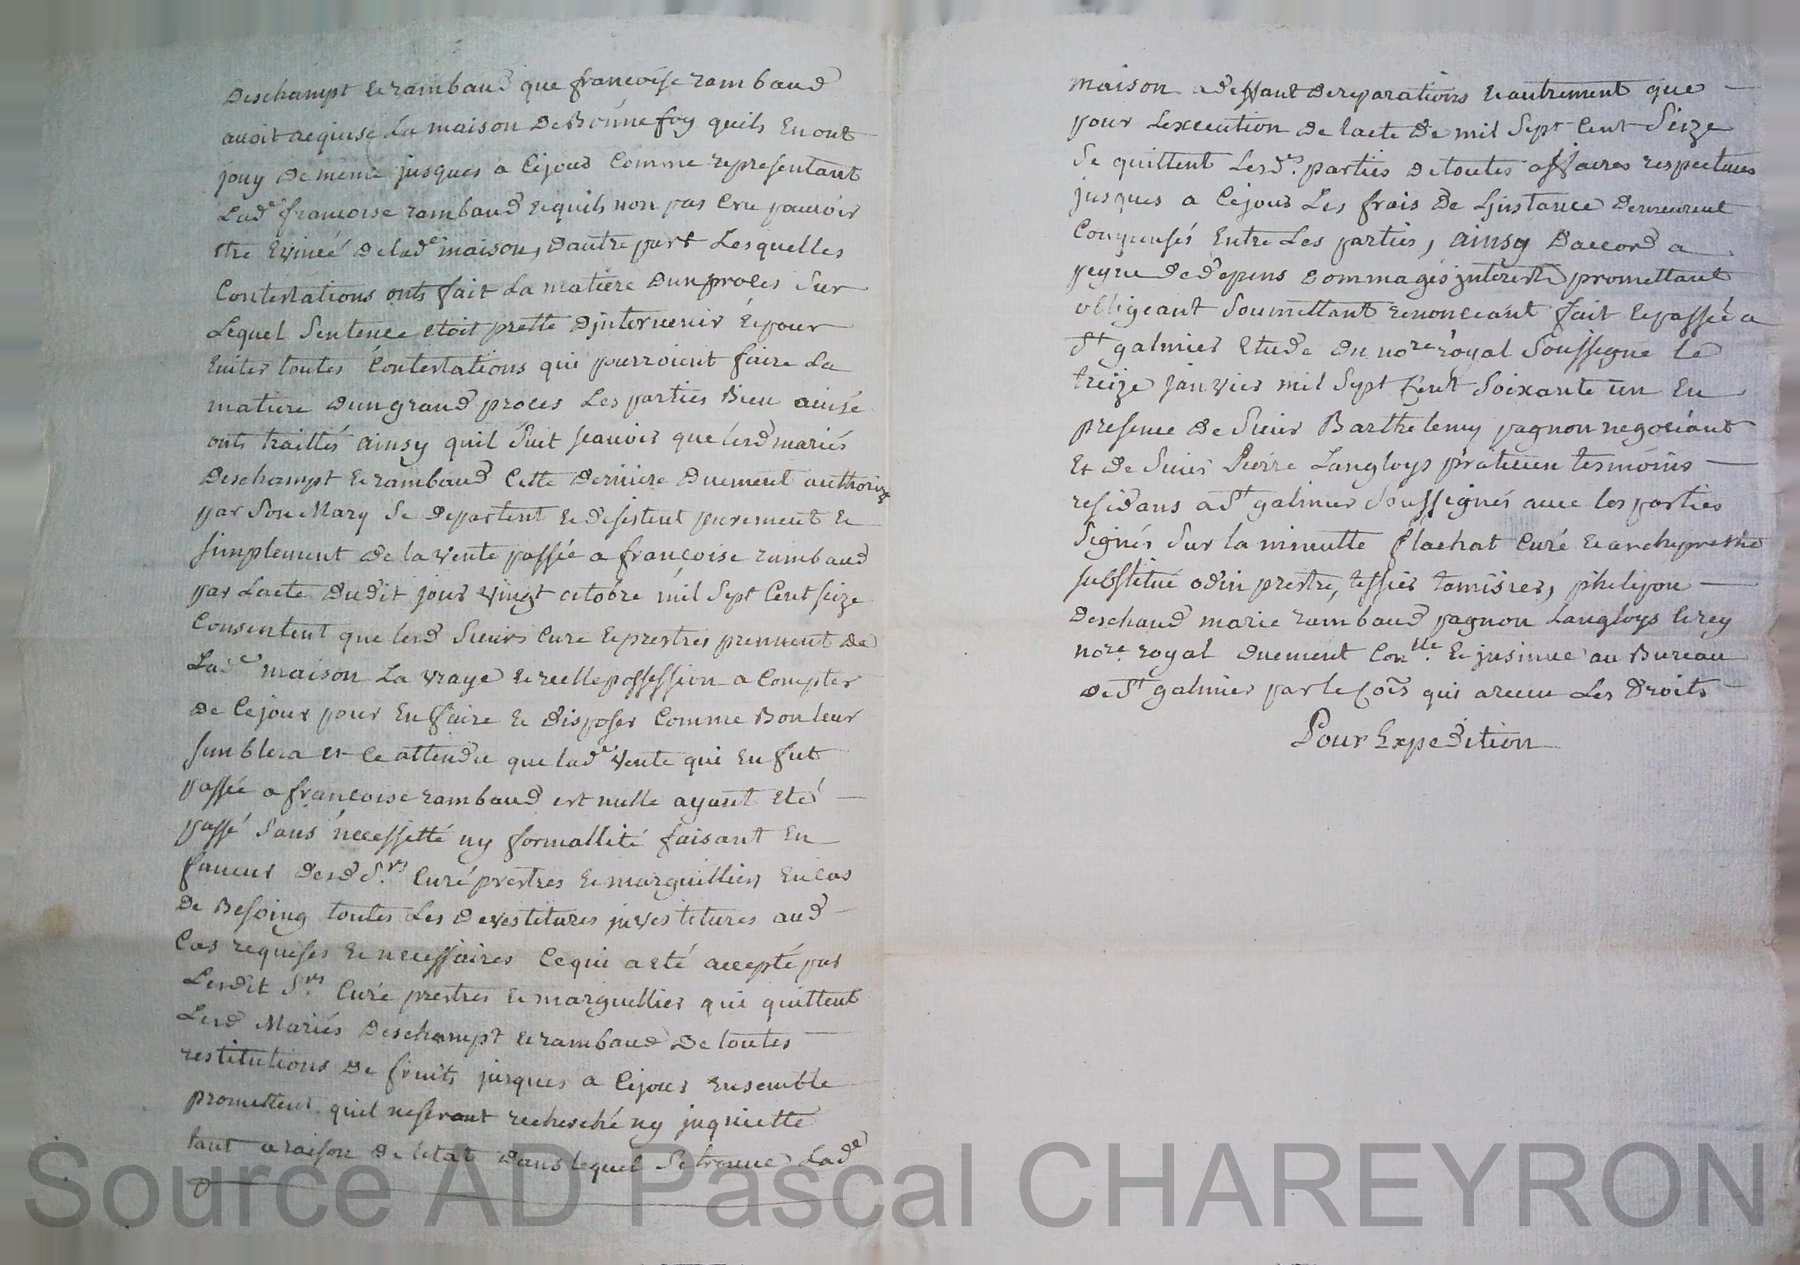 Deschampt & rambaud que francoise rambaud
avoit acquise La maison De Bonne foy quils En ont
jouy De meme jusques a Cejour Comme representant
Lade francoise rambaud & quils non pas Cru pouvoir
etre Evincé De lade maison, Dautre part Lesquelles
Contestations onts fait La matiere Dun proces Sur
Lequel Sentence etoit prette Djntervenir & pour
Eviter toutes Contestations qui pourroient faire La
matiere Dun grand proces Les parties Bien avisé
onts traittés ainsy quil Suit scavoir que lesd mariés
Deschampt & rambaud Cette Derniere Duement authorisé
par Son Mary Se Departent & desistent purement &
simplement de la vente passée a françoise rambaud
par Lacte Dudit jour vingt octobre mil Sept Cent seize
Consentent que lesd Sieurs Curé & prestres prennent De
Lade maison La vraye & reelle possession a Compter
De Cejour pour En ffaire & Disposer Comme Bon leur
semblera et Ce attendu que lade vente qui En fut
passée a françoise rambaud est nulle ayant Eté
passé Sans necessitté ny formallité faisant En
faveur Desd Srs Curé prestres & marguilliers En Cas
De Besoing toutes Les Devestitures jnvestitures aud
Cas requises & necessaires Ce qui a eté accepté par
Lesdit Srs Curé prestres & marguilliers qui quittent
Lesd Mariés Deschampt & rambaud De toutes
restitutions De fruits jusques a Cejour Ensemble
promettent quil ne seront recherché ny jnquietté
tant a raison De letat Dans lequel Se trouve Lade
maison a deffaut De reparations & autrement que
pour Lexecution De lacte De mil Sept Cent Seize
Se quittent Lesds. parties De toutes affaires respectives
jusques a Cejour Les frais De Ljnstance Demeurent
Conpensés Entre Les parties, ainsy Daccord a
peyne De Depens Dommages jnterests promettant
obligeant Soumettant renonceant fait & passée a
St galmier Etude Du nore royal Soussigné le
treize janvier mil Sept Cent Soixante un En
presence De Sieur Barthelemy pagnon negociant
Et De Sieur Pierre Langloys praticien tesmoins
residans a St galmier Soussignés avec les parties
Signés Sur la minutte flachat Curé & archypretre
substitué odin prestre, tessier tamisier, philipon
Deschand marie rambaud pagnon Langloys Cirey
nore. royal Duement Conlle. & jnsinué au Bureau
De St galmier par le Cois qui a receu Les Droits
Pour Expedition
Source AD Pascal CHAREYRON